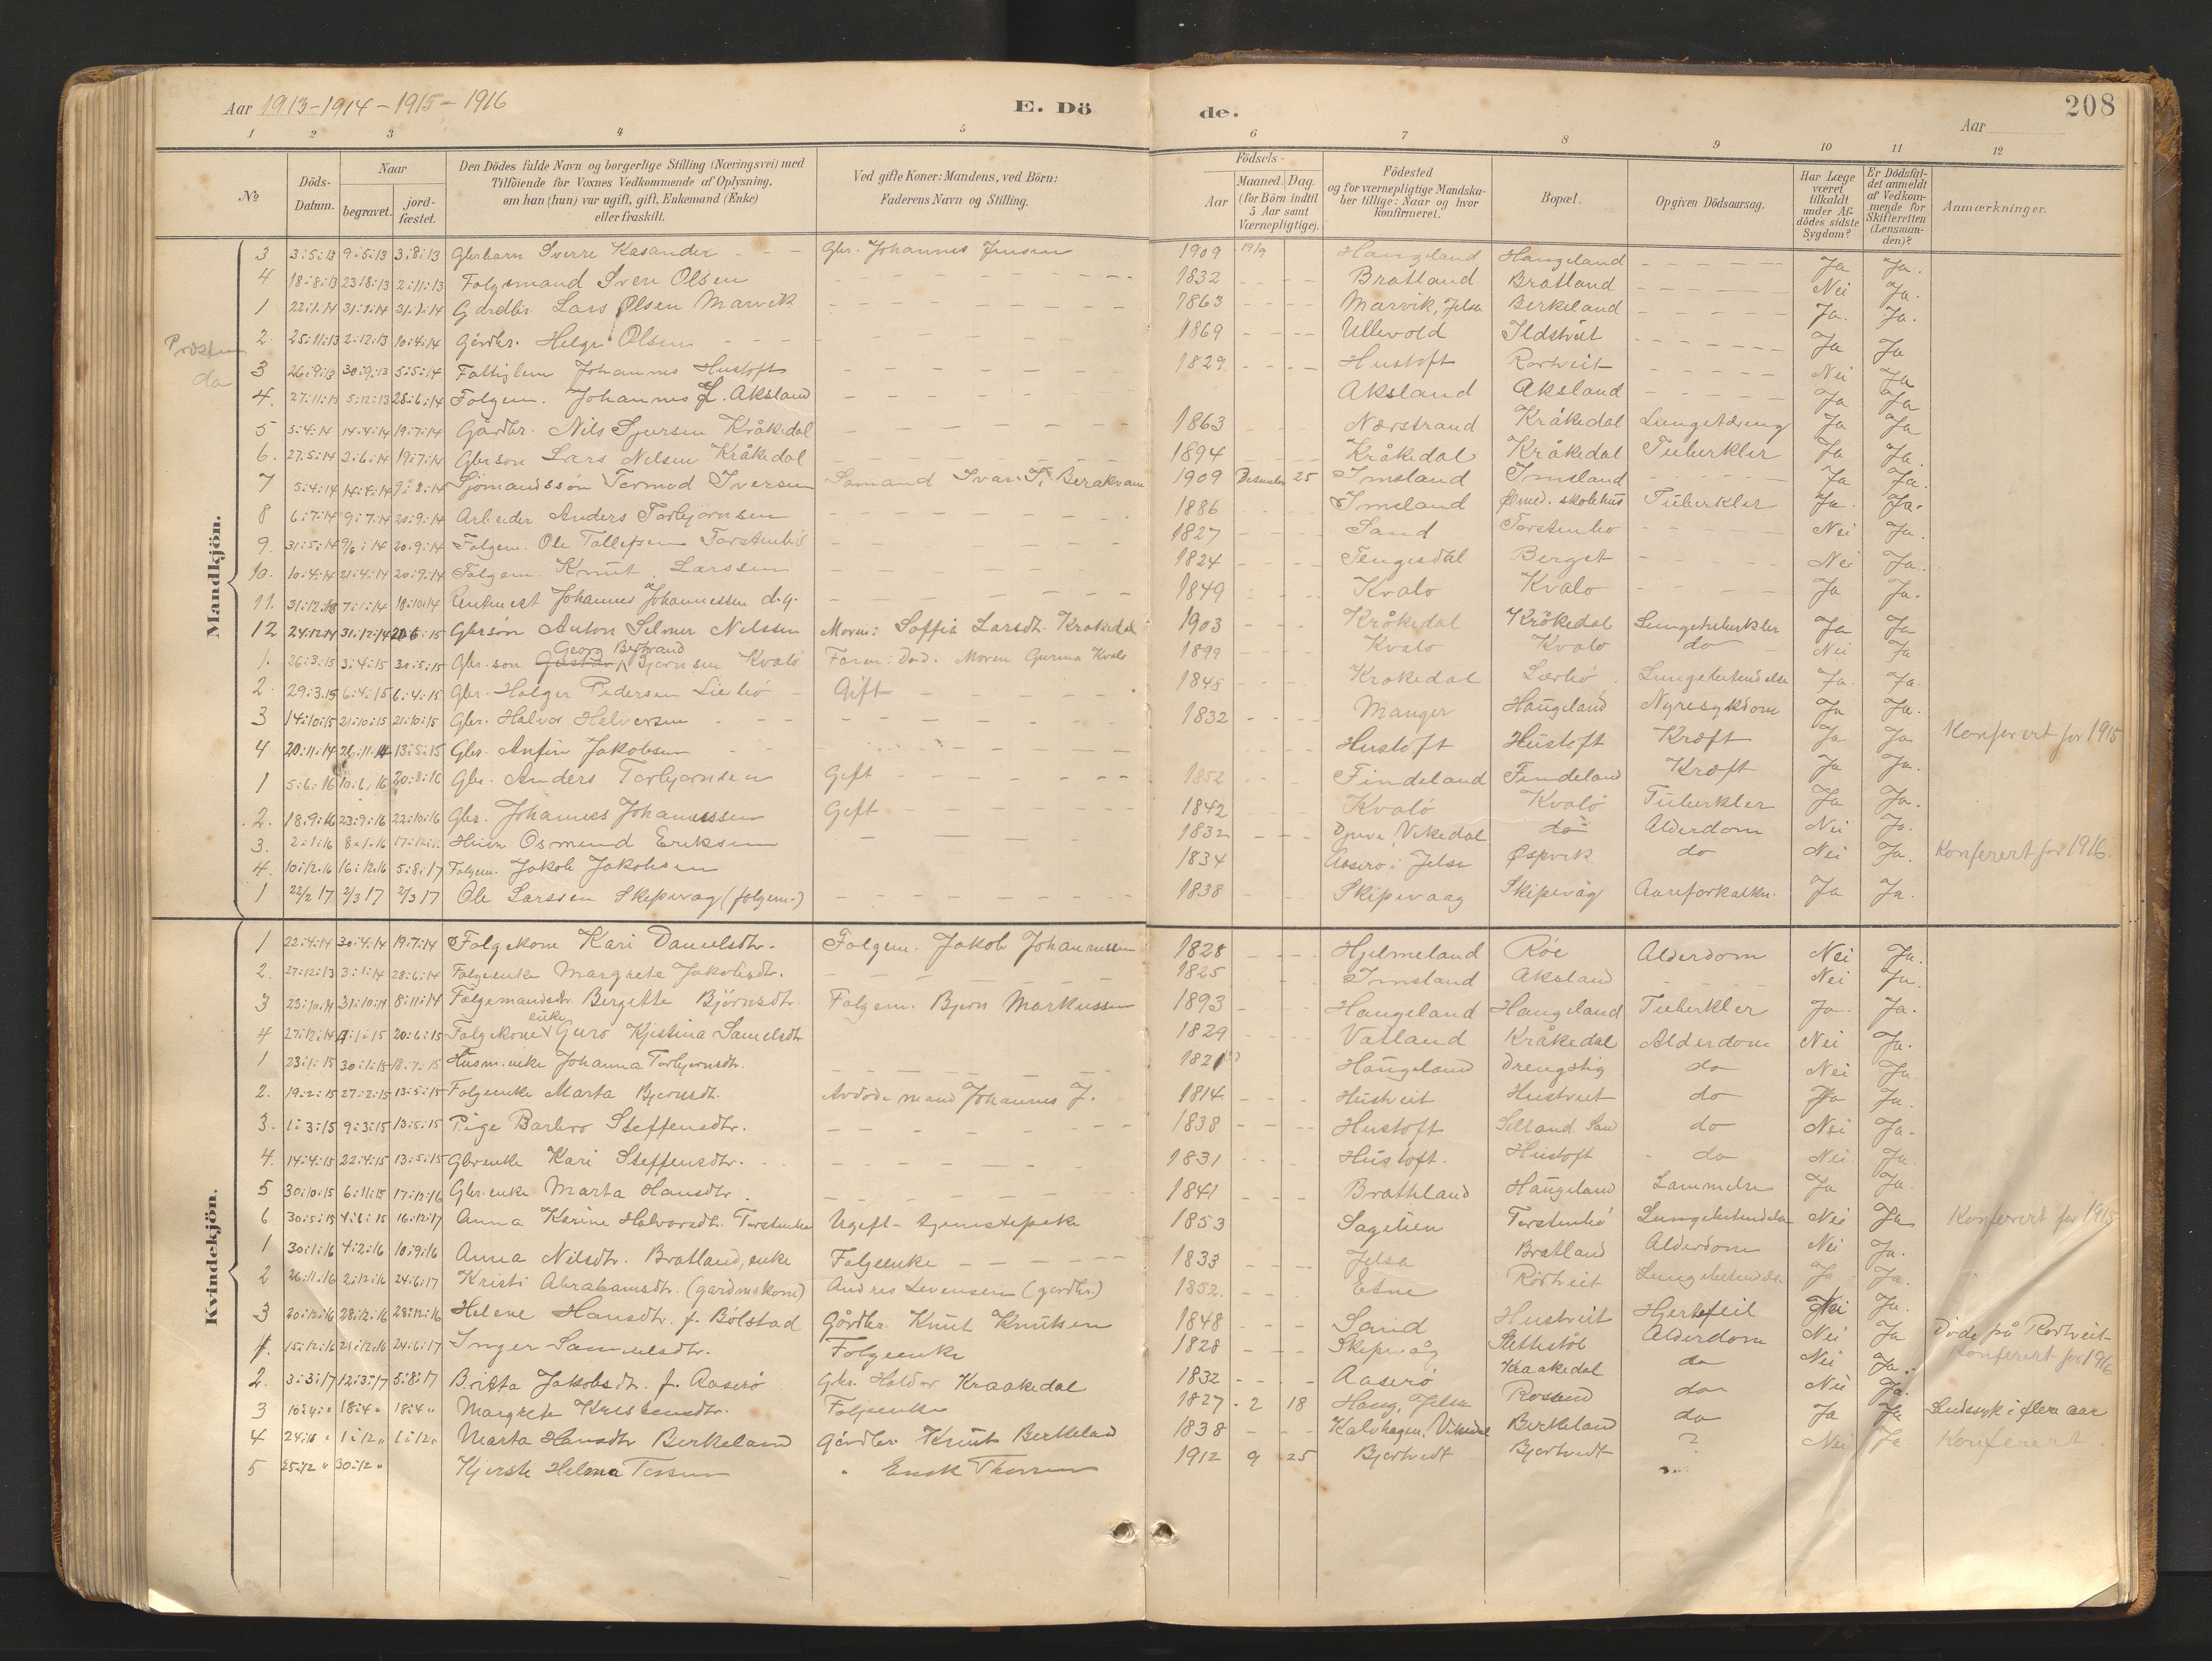 Aar 1913-1914-1915-1916 E. Dö de. Aar 208
1 2 3 4 5 6 7 8 9 10 11 12
№ Döds-Datum. Naar begravet. jord-fæstet. Den Dödes fulde Navn og borgerlige Stilling (Næringsvei) med Tilföiende for Voxnes Vedkommende af Oplysning, om han (hun) var ugift, gift, Enkemand (Enke) eller fraskilt. Ved gifte Koner: Mandens, ved Börn: Faderens Navn og Stilling. Födsels- Aar Maaned. Dag. (for Börn indtil 5 Aar samt Værnepligtige). Födested og for værnepligtige Mandskaber tillige: Naar og hvor konfirmeret. Bopæl. Opgiven Dödsaarsag. Har Læge været tilkaldt under Afdödes sidste Sygdom? Er Dödsfaldet anmeldt af Vedkommende for Skifteretten (Lensmanden)? Anmærkninger.
Mandkjön.
3 3:5:13 9:5:13 3:8:13 Gbrbarn Sverre Kasander Gbr. Johannes Jensen 1909 19/9 Haugeland Haugeland Ja Ja.
4 18:8:13 23:8:13 2:11:13 Folgemand Sven Olsen 1832 Bratland Bratland Nei Ja.
1 22:1:14 31:1:14 31:1:14 Gardbr. Lars Olsen Marvik 1863 Marvik, Jelsa Berkeland Ja. Ja.
2. 25:11:13 2:12:13 10:4:14 Gårdbr. Helge Olsen 1869 Ullevold Ildstveit Ja Ja
3 26:9:13 30:9:13 5:5:14 Fattiglem Johannes Hustoft 1829 Hustoft Rortveit Nei Ja
4. 27:11:13 5:12:13 28:6:14 Folgem. Johannes J. Aksland Aksland Aksland Ja Ja
5 5:4:14 14:4:14 19:7:14 Gårdbr. Nils Sjursen Kråkedal 1863 Nærstrand Kråkedal Lungetæring Ja Ja
6. 27:5:14 2:6:14 19:7:14 Gbrson Lars Nelsen Kråkedal 1894 Kråkedal Kråkedal Tuberkler Ja Ja.
7 5:4:14 14:4:14 9:8:14 Sjömandssön Tormod Iversen Sömand Ivar I. Berakvam 1909 Desember 25 Imsland Imsland Ja Ja.
8 6:7:14 9:7:14 20:9:14 Arbeider Anders Torbjørnsen 1886 Imsland Ølmed. skolehus Tuberkler Ja. Ja.
9. 31:5:14 9/6:14 20:9:14 Folgem. Ole Tollefsen Torstenbø 1827 Sand Torstenbø Nei Ja.
10. 10:4:14 21:4:14 20:9:14 Folgem. Knut Larssen 1824 Tengesdal Berget Nei Ja.
11. 31:12:13 7:1:14 18:10:14 Johannes Johannessen d.y. 1849 Kvalo Kvalo Ja Ja.
12 24:12:14 31:12:14 20:6:15 Gbrsøn Anton Selmer Nelssen Moren: Soffie Larsdt. Krakedal 1903 Kråkedal Kråkedal Lungetuberkler Ja Ja
1. 26:3:15 3:4:15 30:5:15 Gbr. son Georg Bertrand Bjørnsen Kvalø Faren: Død. Moren Gurina Kvalo 1899 Kvalo Kvalo do Nei Ja
2. 29:3:15 6:4:15 6:4:15 Gbr. Holger Pedersen Liebø Gift 1848 Krokedal Lærbø Lungebetendelse Ja. Ja.
3 14:10:15 21:10:15 21:10:15 Gbr. Halvor Halvorsen 1832 Manger Haugeland Nyresykdom Ja Ja.
4 20:11:14 26:11:14 13:5:15 Gbr. Anfin Jakobsen Hustoft Hustoft Kræft Ja Ja Konferert for 1915
1 5:6:16 10:6:16 20:8:16 Gbr. Anders Torbjørnsen Gift 1852 Findeland Findeland Kræft Ja Ja.
2. 18:9:16 23:9:16 22:10:16 Gbr. Johannes Johannessen Gift 1842 Kvalø Kvalø Tuberkler Ja Ja.
3. 2:1:16 8:1:16 Husm Osmund Eriksen 1832 Djuva, Vikedal do Alderdom Nei Ja.
4. 10:12:16 16:12:16 5:8:17 Folgem. Jakob Jakobsen 1834 Aaserø i Jelse Øspvik do Nei Ja. Konferert for 1916.
1 22/2 17 2/3 17 2/3 17 Ole Larssen Skipevåg (folgem.) 1838 Skipevaag Skipevåg Aareforkalkn. Ja Ja.
Kvindekjön.
1 22:4:14 30:4:14 19:7:14 Folgekone Kari Danielsdtr. Folgem. Jakob Johannessen 1828 Hjelmeland Röe Alderdom Nei Ja.
2. 27:12:13 3:1:14 28:6:14 Folgeenke Margrete Jakobsdtr. 1825 Imsland Aksland Nei Ja.
3 23:10:14 31:10:14 8:11:14 Folgemandsdtr. Bergitte Bjørnsdtr. Folgem. Bjørn Markussen 1893 Haugeland Haugeland Tuberkler Ja. Ja.
4 27:12:14 20:6:15 Folgekone enke Guro Kjistina Samelsdtr 1829 Vatland Kråkedal Alderdom Nei Ja.
1 23:1:15 30:1:15 18:7:15 Husm. enke Johanna Torbjørnsdtr. 1821 Haugeland Drengstig do Nei Ja
2. 19:2:15 27:2:15 13:5:15 Folgeenke Marta Bjørnsdt. Avdøde mand Johannes J. 1814 Hustveit Hustveit do Ja Ja.
3. 1:3:15 9:3:15 13:5:15 Pige Barbro Steffensdtr. 1838 Hustoft Selland. Sand do Nei Ja.
4. 14:4:15 22:4:15 13:5:15 Gbrenke Kari Steffensdtr. 1831 Hustoft. Hustoft do Nei Ja.
5 30:10:15 6:11:15 17:12:16 Gbr. enke Marta Hansdtr. 1841 Brathland Haugeland Lammelse Ja Ja.
6 30:5:15 4:6:15 16:12:17 Anna Karine Halvorsdtr. Torstenbø Ugift - tjenestepike 1853 Sagelien Torstenbø Lungebetendelse Nei Ja Konferert for 1915
1 30:1:16 4:2:16 10:9:16 Anna Nilsdtr. Bratland, enke Folgeenke 1833 Jelsa Bratland Alderdom Nei Ja.
2 26:11:16 2:12:16 24:6:17 Kristi Abrahamsdtr. (gardmskone) Andres Levensen (gardbr.) 1852. Etne Rörtveit Lungebetendelse Ja Ja.
3 20:12:16 28:12:16 28:12:16 Helene Hansdtr. f. Bölstad Gårdbr. Knut Knutsen 1848 Sand Hustveit Hjertefeil Nei Ja. Døde på Rortveit
1. 15:12:16 21:12:16 24:6:17 Inger Samuelsdtr. Folgeenke 1828 Skipevåg Slettestöl Alderdom Nei Ja Konferert for 1916
2. 3:3:17 12:3:17 5:8:17 Britta Jakobsdtr. f. Aaserø Gbr. Haldor Kraakedal 1832 Aaserø Kraakedal do Nei Ja.
3 10:4:" 18:4 " 18:4 " Margrete Kristensdtr. Folgeenke 1827 2 18 Haug, Jelsa Rosund do Nei Ja. Sindssyk i flere aar
4 1:12 " 1:12 " Marta Hansdtr Berkeland Gårdbr. Knut Berkeland 1838 Kalvhagen, Vikedal Berkeland do Ja Ja Konferert
5 25:12 " 30:12 " Kjersti Helma 1912 9 25 Bjørtvedt Bjørtvedt ? Nei Ja